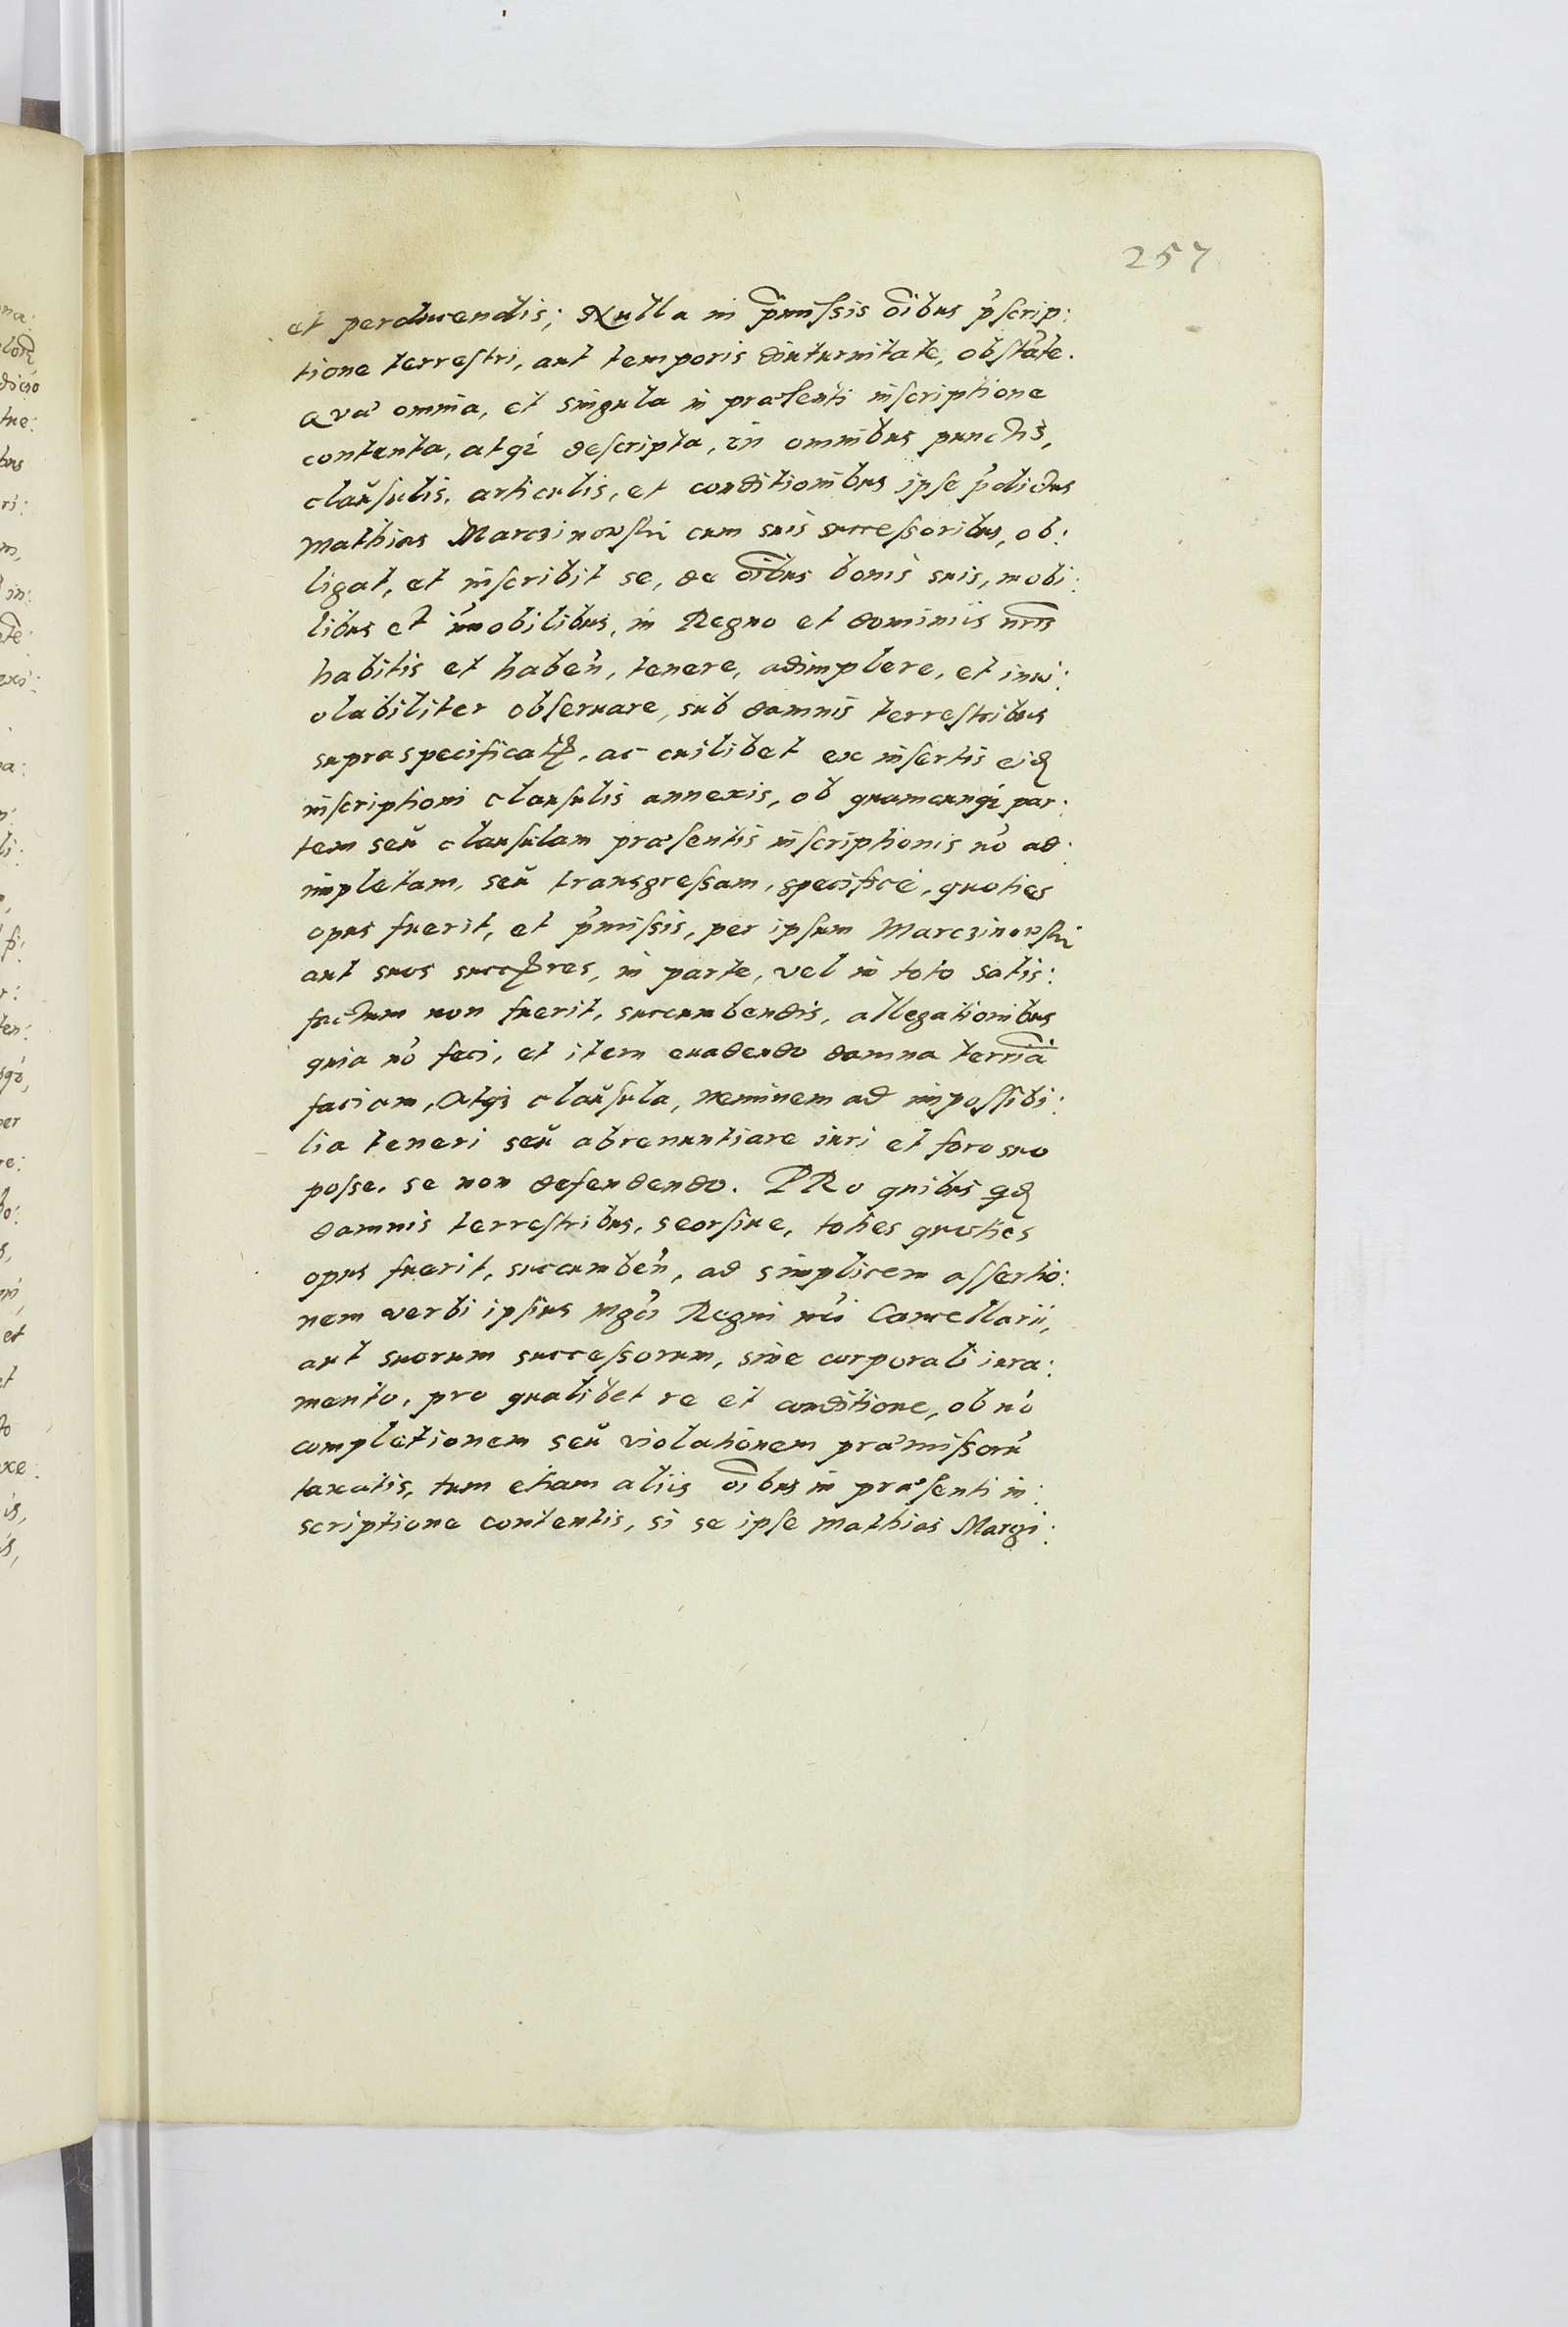 257
et perducendis; Nulla in p̃missis oĩbus p̓scrip:
tione terrestri, aut temporis diuturnitate, obsta̓te.
Quæ omnia, et singula in præsenti inscriptione
contenta, atq́; descripta, in omnibus punctis,
clausulis, articulis, et conditionibus ipse p̓dictus
Mathias Marczinowski cum suis successoribus, ob:
ligat, et inscribit se, de oĩbus bonis suis, mobi:
libus et im̓obilibus, in Regno et dominiis nr̃is
habitis et haben̓, tenere, adimplere, et invi:
olabiliter obseruare, sub damnis terrestribus
supraspecificatꝭ, ac cuilibet ex insertis eidꝫ
inscriptioni clausulis annexis, ob quamcunq́; par:
tem seŭ clausulam præsentis inscriptionis no̓ ad:
impletam, seŭ transgressam, specificè, quoties
opus fuerit, et p̓missis, per ipsum Marczinowski
aut suos succꝭres, in parte, vel in toto satis:
factum non fuerit, succumbendis, allegationibus
quia no̓ feci, et item euadendo damna terr̃ia
faciam, Atq́; claŭsula, neminem ad impossibi:
lia teneri seŭ abrenuntiare iuri et foro suo
posse, se non defendendo. PRo quibus qdꝫ
damnis terrestribus, seorsiue, toties quoties
opus fuerit, succumben̓, ad simplicem assertio:
nem verbi ipsius mgc̓i Regni nr̓i Cancellarii,
aut suorum successorum, sine corporali iura:
mento, pro qualibet re et conditione, ob no̓
completionem seŭ violationem præmissoru̓
taxatis, tum etiam aliis oĩbus in præsenti in:
scriptione contentis, si se ipse Mathias Margi: